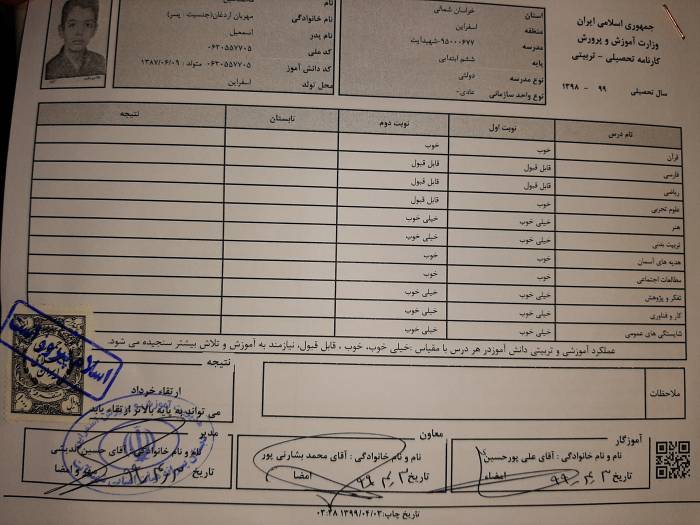 جمهوری اسلامی ایران
وزارت آموزش و پرورش
کارنامه تحصیلی - تربیتی
سال تحصیلی ۹۹ - ۱۳۹۸
استان خراسان شمالی
منطقه اسفراین
مدرسه ۹۵۰۰۰۶۷۷-شهیدآیت
پایه ششم ابتدایی
نوع مدرسه دولتی
نوع واحد سازمانی عادی-
نام
نام خانوادگی مهربان اردغان(جنسیت : پسر)
نام پدر اسمعیل
کد ملی ۰۶۲۰۵۵۷۷۰۵
کد دانش آموز ۰۶۲۰۵۵۷۷۰۵ متولد : ۱۳۸۷/۰۶/۰۹
محل تولد اسفراین
نام درس نوبت اول نوبت دوم تابستان نتیجه
قرآن خوب خوب
فارسی قابل قبول قابل قبول
ریاضی قابل قبول قابل قبول
علوم تجربی خوب قابل قبول
هنر خیلی خوب خیلی خوب
تربیت بدنی خیلی خوب خیلی خوب
هدیه های آسمان خوب خوب
مطالعات اجتماعی خوب خوب
تفکر و پژوهش خیلی خوب خیلی خوب
کار و فناوری خیلی خوب خیلی خوب
شایستگی های عمومی خیلی خوب خیلی خوب
عملکرد آموزشی و تربیتی دانش آموزدر هر درس با مقیاس :خیلی خوب، خوب ، قابل قبول، نیازمند به آموزش و تلاش بیشتر سنجیده می شود.
ملاحظات
نتیجه
ارتقاء خرداد
می تواند به پایه بالاتر ارتقاء یابد
آموزگار
نام و نام خانوادگی : آقای علی پورحسین
تاریخ ۹۹.۴.۳ امضاء
معاون
نام و نام خانوادگی : آقای محمد بشارتی پور
تاریخ ۹۹.۴.۳ امضا
مدیر
نام و نام خانوادگی : آقای حسین اندیسی
تاریخ ۹۹.۴.۳ مهر و امضا
تاریخ چاپ:۱۳۹۹/۰۴/۰۳ ۰۳:۴۸